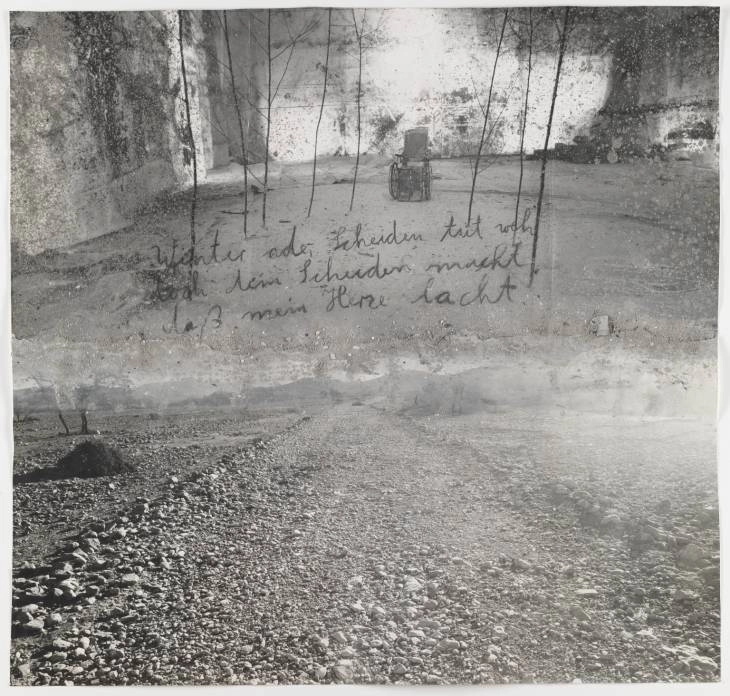 Winter ade, Scheiden tut weh
doch dein Scheiden macht,
daß mein Herze lacht